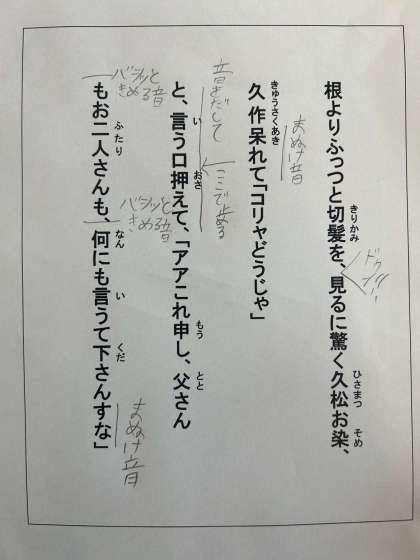 根よりふっつと切髪を、見るに驚く久松お染、
きりかみ
ひさまつ
そめ
まぬけ音
久作呆れて「コリャどうじゃ」
きゅうさくあき
音きだして
ここで止める
と、言う口押えて、「アアこれ申し、父さん
い
おさ
もう
とと
バシッと
きめる音
バシッと
きめる音
もお二人さんも、何にも言うて下さんすな」
ふたり
なん
い
くだ
まぬけ音